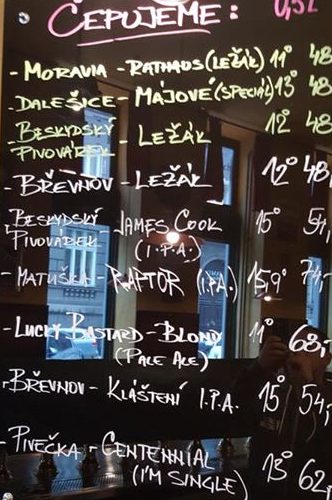 ČEPUJEME: 0,5L
- MORAVIA - RATHAUS (LEŽÁK) 11° 48
- DALEŠICE - MÁJOVÉ (SPECIÁL) 13° 48
- BESKYDSKÝ PIVOVÁREK - LEŽÁK 12° 48
- BŘEVNOV - LEŽÁK 12° 48,-
- BESKYDSKÝ PIVOVÁREK - JAMES COOK 15° 54,-
(I.P.A.)
- MATUŠKA - RAPTOR (I.P.A.) 15,9° 74,-
- LUCKY BASTARD - BLOND 11° 68,-
(PALE ALE)
- BŘEVNOV - KLÁŠTENÍ I.P.A. 15° 54,-
- PIVEČKA - CENTENNIAL 13° 62,
(I'M SINGLE)